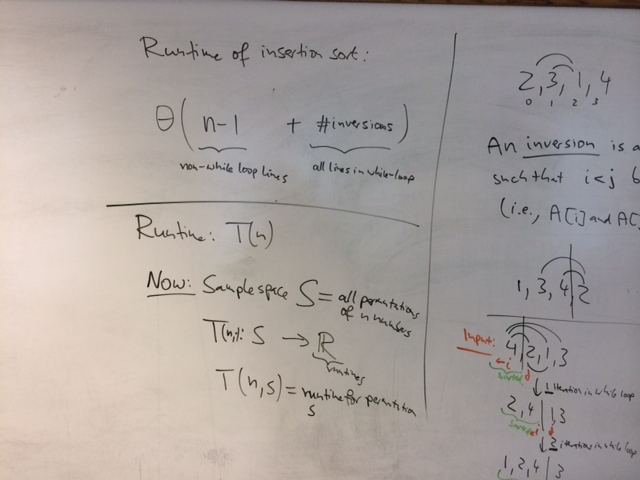 Runtime of insertion sort:
Θ( n-1 + #inversions )
non-while loop lines all lines in while-loop
Runtime: T(n)
Now: Sample space S = all permutations
of n numbers
T(n,·): S → ℝ
runtimes
T(n,s) = runtime for permutation
s
2, 3, 1, 4
0 1 2 3
An inversion is a
such that i<j b
(i.e., A[i] and A[j]
1, 3, 4, 2
Input: 4, 2, 1, 3
←i j
sorted
↓ 1 iteration in while loop
2, 4 | 1, 3
sorted
↓ 2 iterations in while loop
1, 2, 4 | 3